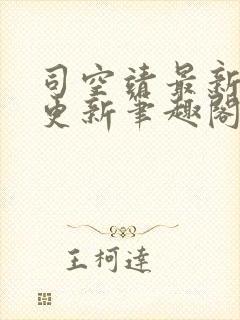 司空靖最新
更新笔趣閣
王柯達